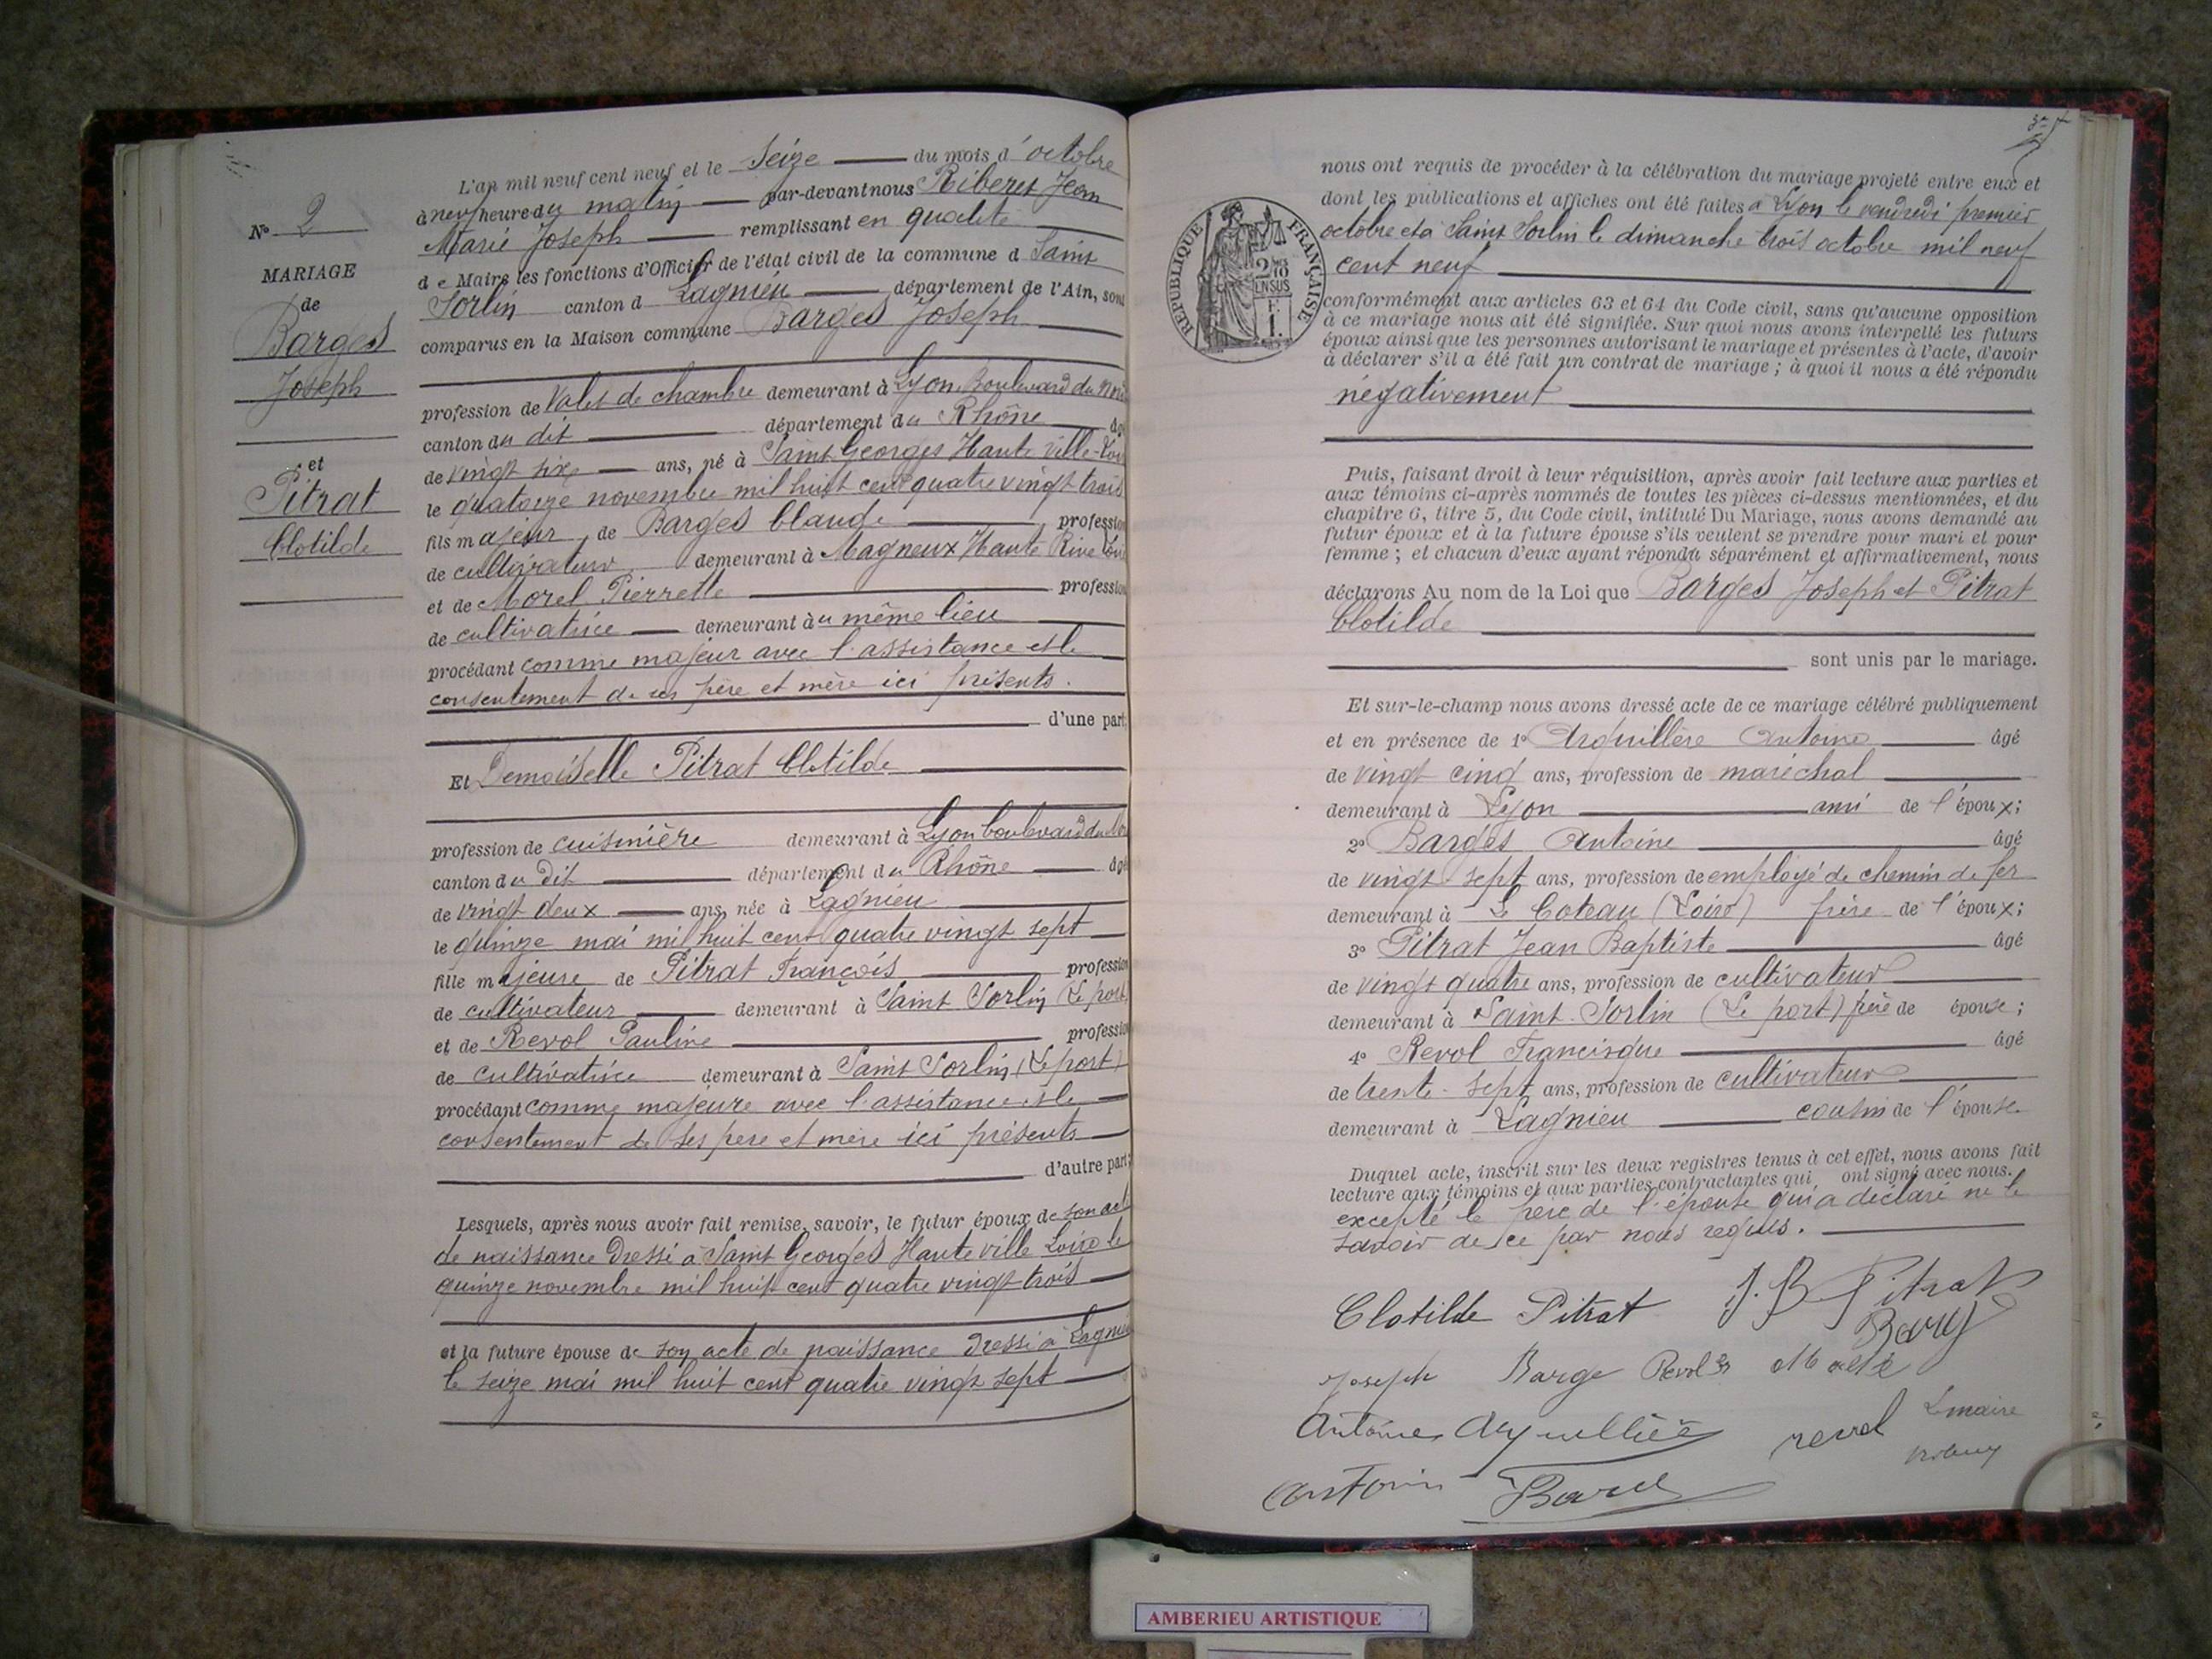 N° 2
MARIAGE
de
Barges
Joseph
et
Pitrat
Clotilde
L'an mil neuf cent neuf et le Seize du mois d'octobre
à neuf heure du matin par-devant nous Riberet Jean
Marie Joseph remplissant en qualité
de Maire les fonctions d'Officier de l'état civil de la commune d Saint
Sorlin canton d Lagnieu département de l'Ain, sont
comparus en la Maison commune Barges Joseph
profession de valet de chambre demeurant à Lyon Boulevard du Nord
canton du dit département du Rhône âgé
de vingt six ans, né à Saint Georges Haute Ville Loire
le quatorze novembre mil huit cent quatre vingt trois
fils majeur, de Barges Claude profession
de cultivateur demeurant à Magneux Haute Rive Loire
et de Morel Pierrette profession
de cultivatrice demeurant au même lieu
procédant comme majeur avec l'assistance et le
consentement de ses père et mère ici présents.
d'une part;
Et Demoiselle Pitrat Clotilde
profession de cuisinière demeurant à Lyon boulevard du Nord
canton du dit département du Rhône âgé
de vingt deux ans, née à Lagnieu
le quinze mai mil huit cent quatre vingt sept
fille majeure de Pitrat François profession
de cultivateur demeurant à Saint Sorlin (Le port)
et de Revol Pauline profession
de cultivatrice demeurant à Saint Sorlin (Le port)
procédant comme majeure avec l'assistance et le
consentement de ses père et mère ici présents
d'autre part;
Lesquels, après nous avoir fait remise, savoir, le futur époux de son acte
de naissance dressé à Saint Georges Haute ville Loire le
quinze novembre mil huit cent quatre vingt trois
et la future épouse de son acte de naissance dressé à Lagnieu
le seize mai mil huit cent quatre vingt sept
nous ont requis de procéder à la célébration du mariage projeté entre eux et
dont les publications et affiches ont été faites à Lyon le vendredi premier
octobre et à Saint Sorlin le dimanche trois octobre mil neuf
cent neuf
RÉPUBLIQUE FRANÇAISE
2/10 EN SUS
F. 1.
conformément aux articles 63 et 64 du Code civil, sans qu'aucune opposition
à ce mariage nous ait été signifiée. Sur quoi nous avons interpellé les futurs
époux ainsi que les personnes autorisant le mariage et présentes à l'acte, d'avoir
à déclarer s'il a été fait un contrat de mariage ; à quoi il nous a été répondu
négativement
Puis, faisant droit à leur réquisition, après avoir fait lecture aux parties et
aux témoins ci-après nommés de toutes les pièces ci-dessus mentionnées, et du
chapitre 6, titre 5, du Code civil, intitulé Du Mariage, nous avons demandé au
futur époux et à la future épouse s'ils veulent se prendre pour mari et pour
femme ; et chacun d'eux ayant répondu séparément et affirmativement, nous
déclarons Au nom de la Loi que Barges Joseph et Pitrat
Clotilde
sont unis par le mariage.
Et sur-le-champ nous avons dressé acte de ce mariage célébré publiquement
et en présence de 1° Arquillère Antoine âgé
de vingt cinq ans, profession de maréchal
demeurant à Lyon ami de l'époux;
2° Barges Antoine âgé
de vingt-sept ans, profession de employé de chemin de fer
demeurant à Le Coteau (Loire) frère de l'époux;
3° Pitrat Jean Baptiste âgé
de vingt quatre ans, profession de cultivateur
demeurant à Saint-Sorlin (Le port) frère de épouse;
4° Revol Francisque âgé
de trente-sept ans, profession de cultivateur
demeurant à Lagnieu cousin de l'épouse
Duquel acte, inscrit sur les deux registres tenus à cet effet, nous avons fait
lecture aux témoins et aux parties contractantes qui ont signé avec nous.
excepté le père de l'épouse qui a déclaré ne le
savoir de ce par nous requis.
Clotilde Pitrat J. B Pitrat
Joseph Barge Revol
Antoine
revol Le maire
Barge
AMBERIEU ARTISTIQUE